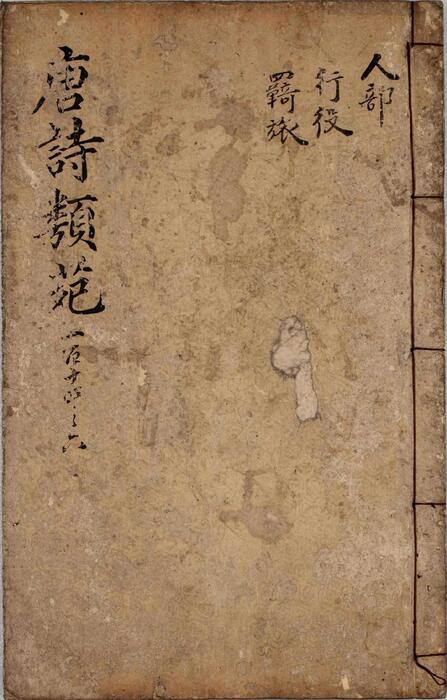 人部
行役
羇旅
唐詩類苑 一百十四之六